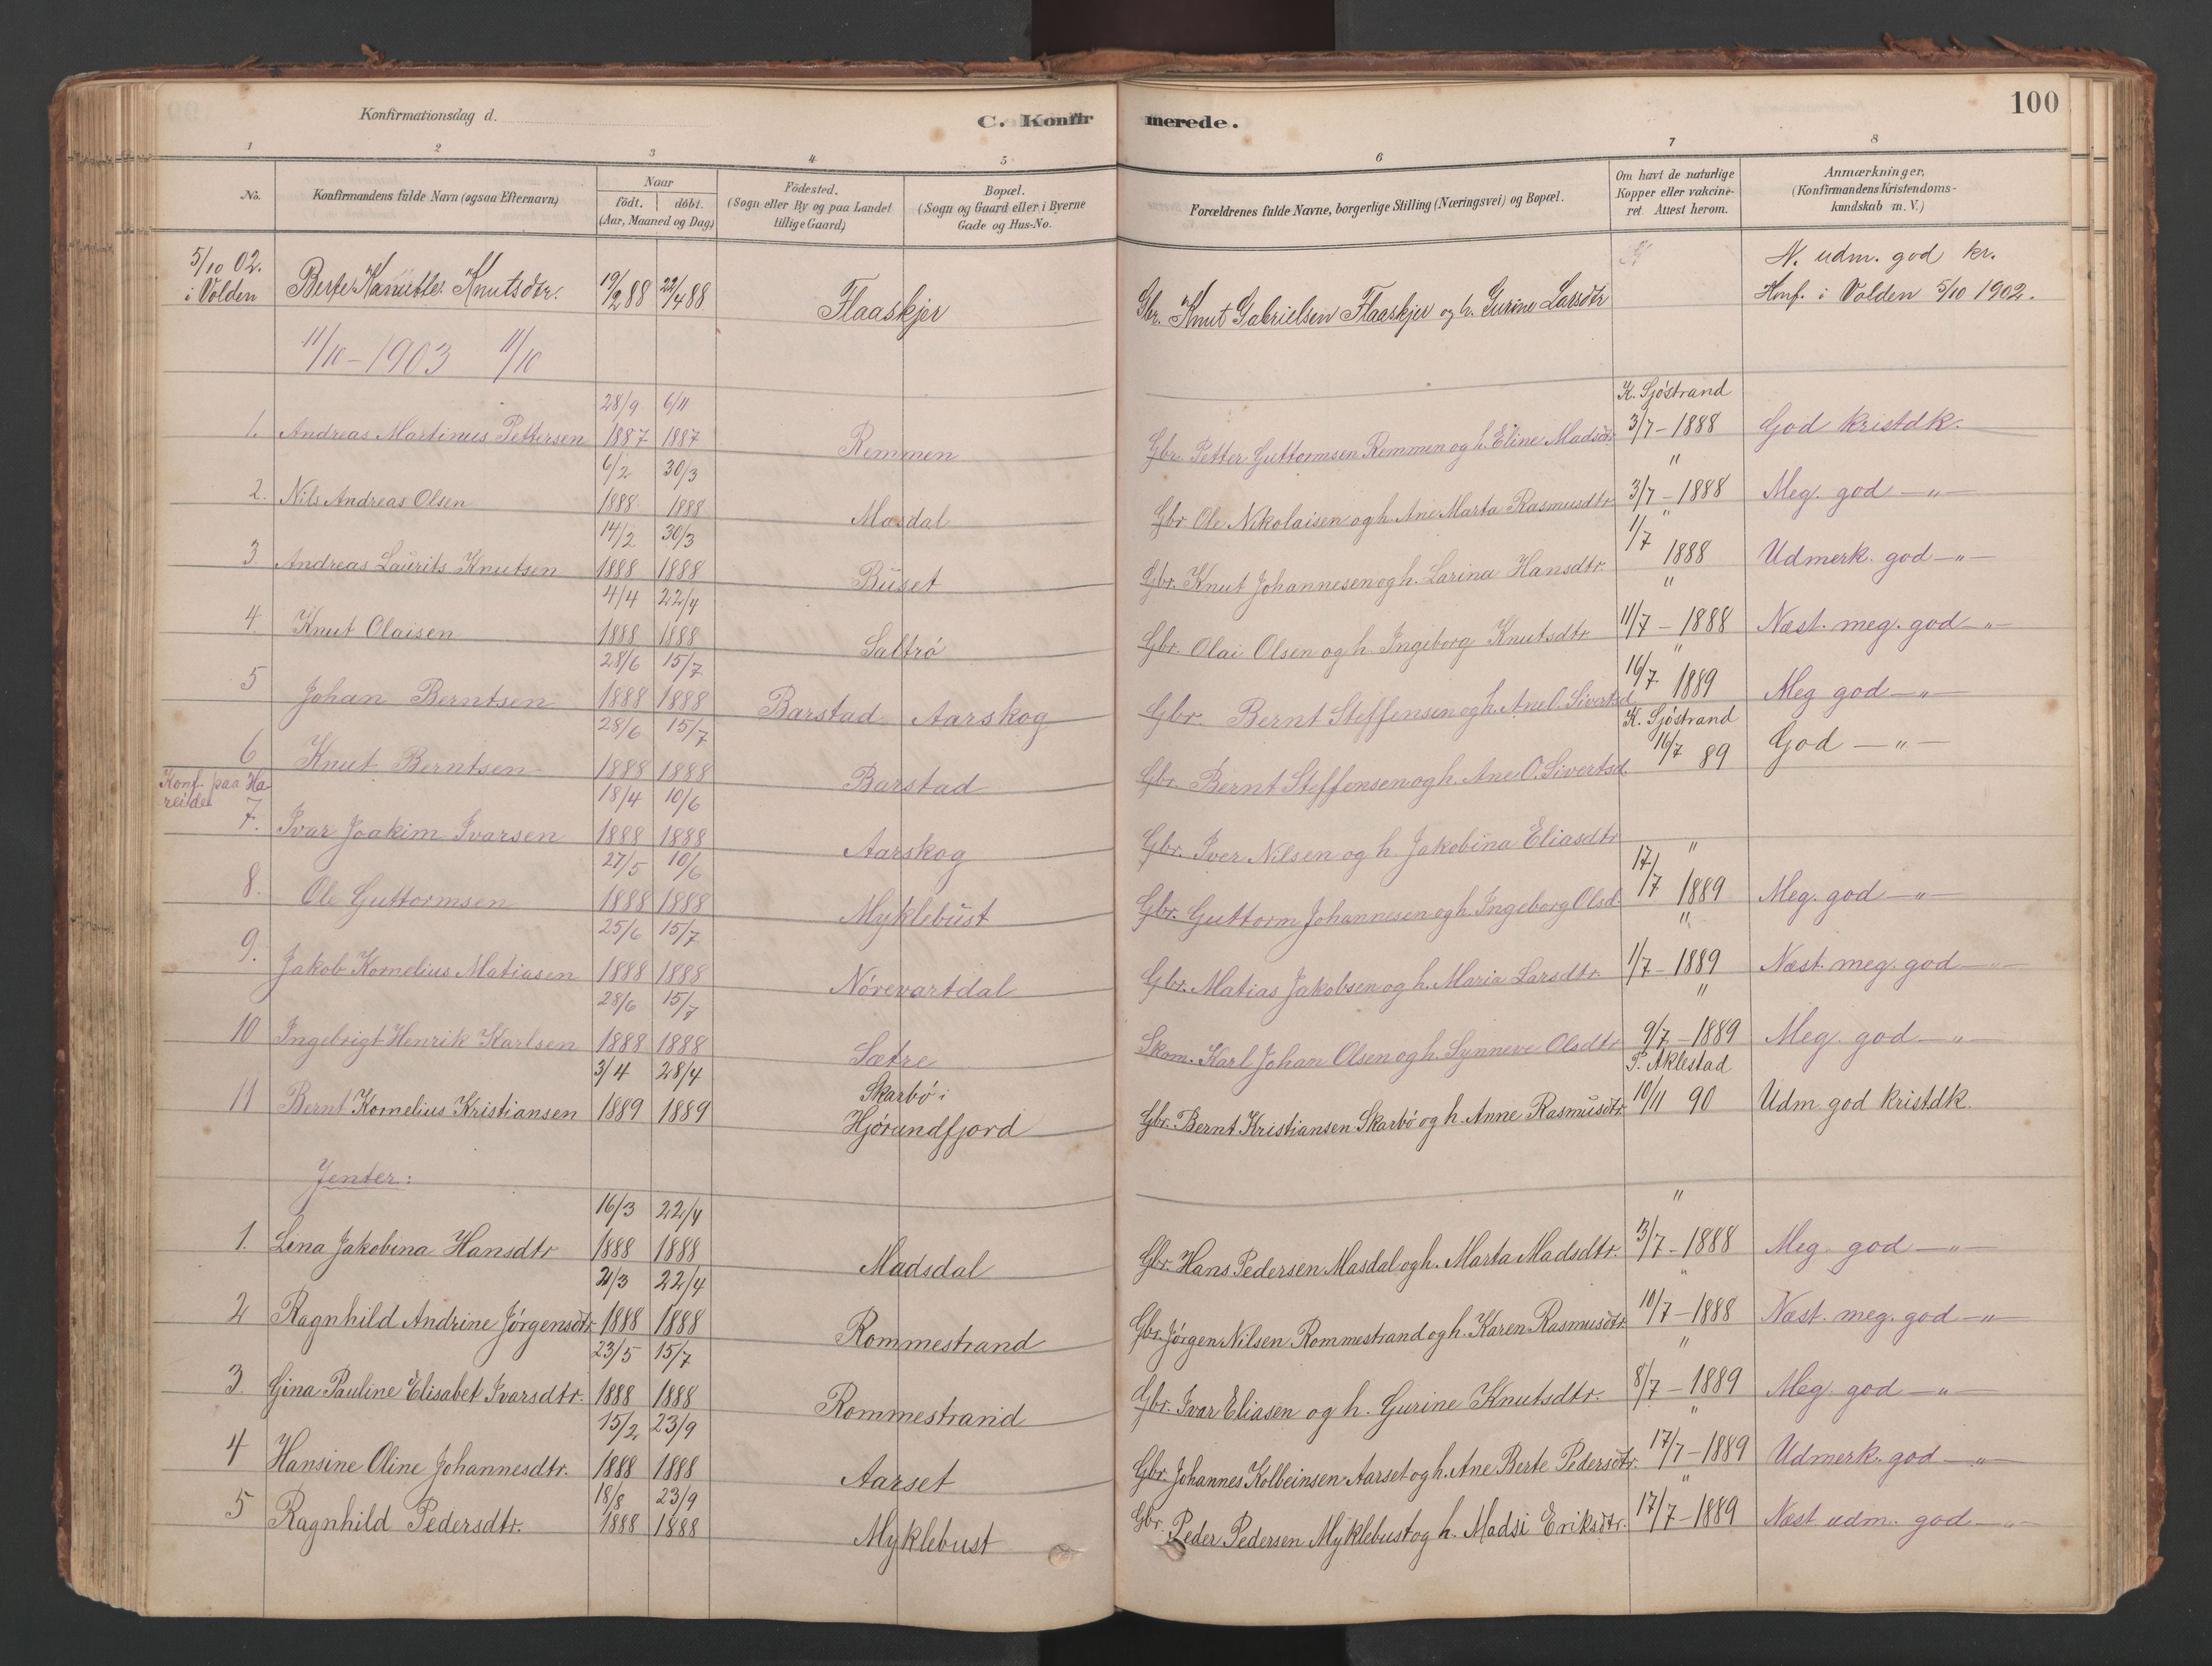 Konfirmationsdag d.
C. Konfirmerede.
100
1 2 3 4 5 6 7 8
No.
Konfirmandens fulde Navn (ogsaa Efternavn)
Naar
födt. döbt.
(Aar, Maaned og Dag)
Födested.
(Sogn eller By og paa Landet
tillige Gaard)
Bopæl.
(Sogn og Gaard eller i Byerne
Gade og Hus-No.
Forældrenes fulde Navne, borgerlige Stilling (Næringsvei) og Bopæl.
Om havt de naturlige
Kopper eller vakcine-
ret Attest herom.
Anmærkninger,
(Konfirmandens Kristendoms-
kundskab m. V.)
5/10 02. N. udm. god kr.
i Volden Berte Knutsdtr. 19/2 88 22/4 88 Flaaskjer Gbr. Knut Gabrielsen Flaaskjer og h. Gurine Larsdtr Konf. i Volden 5/10 1902.
11/10 - 1903 11/10
28/9 6/11 K. Sjöstrand
1. Andreas Martinus Pettersen 1887 1887 Remmen Gbr. Petter Guttormsen Remmen og h. Eline Madsdtr 3/7 - 1888 God kristdk.
6/2 30/3 "
2. Nils Andreas Olsen 1888 1888 Masdal Gbr Ole Nikolaisen og h. Ane Marta Rasmusdtr 3/7 - 1888 Meg. god -"-
14/2 30/3 "
3. Andreas Laurits Knutsen 1888 1888 Buset Gbr. Knut Johannesen og h. Larina Hansdtr. 1/7 1888 Udmerk. god -"-
4/4 22/4 "
4. Knut Olaisen 1888 1888 Saltrö Gbr. Olai Olsen og h. Ingeborg Knutsdtr 11/7 - 1888 Næst. meg. god -"-
28/6 15/7 "
5 Johan Berntsen 1888 1888 Barstad Aarskog Gbr. Bernt Steffensen og h. Ane O. Sivertsd 16/7 1889 Meg god -"-
28/6 15/7 K. Sjöstrand
6 Knut Berntsen 1888 1888 Barstad Gbr. Bernt Steffensen og h. Ane O. Sivertsd. 16/7 89 God -"-
Konf. paa Ha
reide 18/4 10/6
7. Ivar Joakim Ivarsen 1888 1888 Aarskog Gbr. Iver Nilsen og h. Jakobina Eliasdtr
27/5 10/6 "
8. Ole Guttormsen 1888 1888 Myklebust Gbr. Guttorm Johannesen og h. Ingeborg Olsd. 17/7 1889 Meg. god -"-
25/6 15/7 "
9. Jakob Kornelius Matiasen 1888 1888 Nörevartdal Gbr. Matias Jakobsen og h. Maria Larsdtr. 1/7 - 1889 Næst. meg. god -"-
28/6 15/7 "
10 Ingebrigt Henrik Karlsen 1888 1888 Sætre Skom. Karl Johan Olsen og h. Synneve Olsdtr 9/7 - 1889 Meg. god -"-
3/4 28/4 Skarbö i P. Aklestad
11 Bernt Kornelius Kristiansen 1889 1889 Hjörundfjord Gbr. Bernt Kristiansen Skarbö og h. Anne Rasmusdtr 10/11 90 Udm god kristdk.
Jenter:
16/3 22/4 "
1. Lina Jakobina Hansdtr 1888 1888 Madsdal Gbr. Hans Pedersen Masdal og h. Marta Madsdtr. 3/7 - 1888 Meg. god -"-
21/3 22/4 "
2 Ragnhild Andrine Jörgensdtr 1888 1888 Rommestrand Gbr. Jörgen Nilsen Rommestrand og h. Karen Rasmusdtr 10/7 - 1888 Næst. meg. god -"-
23/5 15/7 "
3 Gina Pauline Elisabet Ivarsdtr. 1888 1888 Rommestrand Gbr. Ivar Eliasen og h. Gurine Knutsdtr. 8/7 - 1889 Meg. god -"-
15/2 23/9 "
4 Hansine Oline Johannesdtr. 1888 1888 Aarset Gbr. Johannes Kolbeinsen Aarset og h. Ane Berte Pedersdtr. 17/7 - 1889 Udmerk. god -"-
18/8 23/9 "
5 Ragnhild Pedersdtr. 1888 1888 Myklebust Gbr. Peder Pedersen Myklebust og h. Madsi Eriksdtr. 17/7 - 1889 Næst udm. god -"-